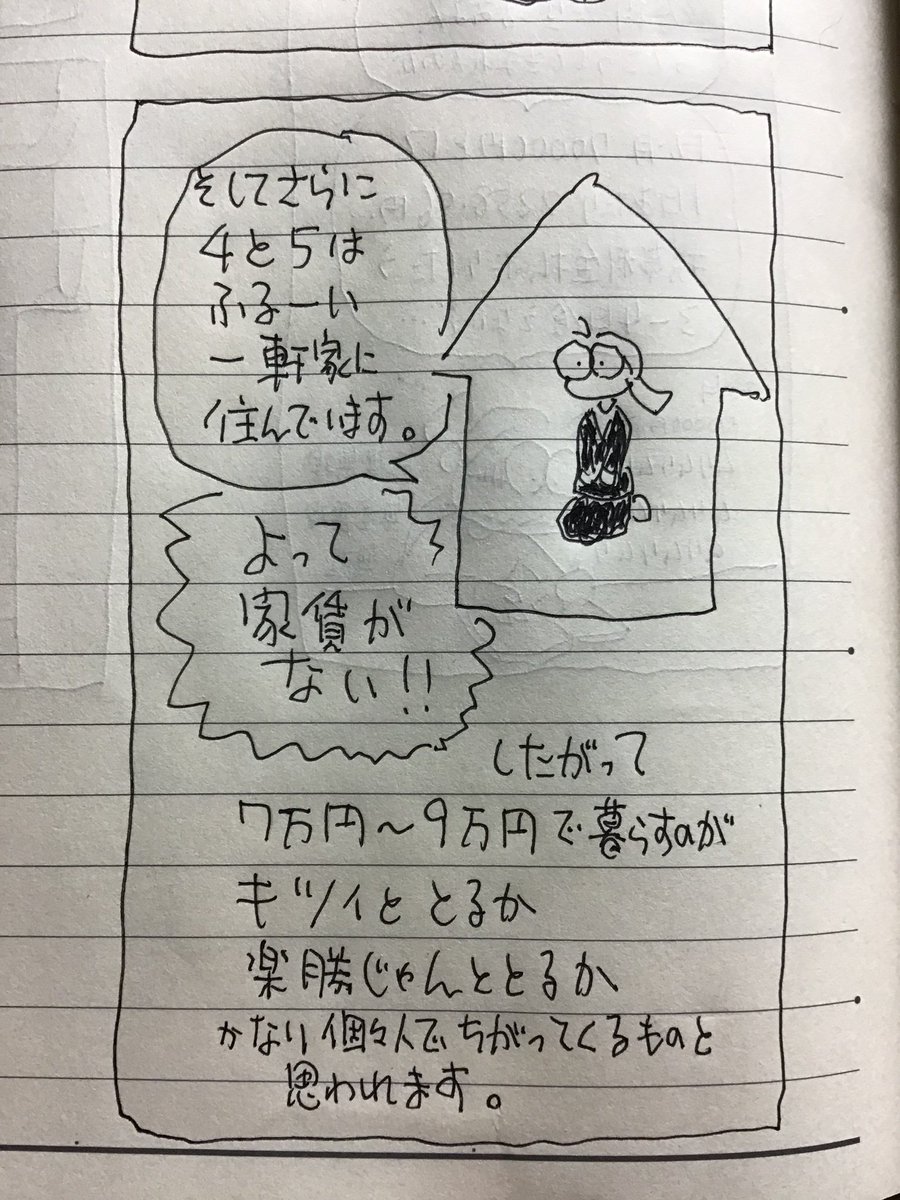 そしてさらに
4と5は
ふるーい
一軒家に
住んでいます。
よって
家賃が
ない!!
したがって
7万円〜9万円で暮らすのが
キツイととるか
楽勝じゃんととるか
かなり個々人でちがってくるものと
思われます。